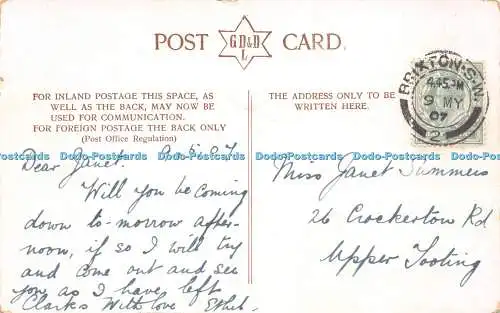 POST CARD.
G D & D
L
FOR INLAND POSTAGE THIS SPACE, AS
WELL AS THE BACK, MAY NOW BE
USED FOR COMMUNICATION.
FOR FOREIGN POSTAGE THE BACK ONLY
(Post Office Regulation)
THE ADDRESS ONLY TO BE
WRITTEN HERE.
BRIXTON.S.W.
4.45.PM
9 MY
07
Dodo-Postcards Dodo-Postcards Dodo-Postcards Dodo-Postcards Dodo-Postcards
Dear Janet. 9.5.07
Will you be coming
down to-morrow after-
noon, if so I will try
and come out and see
you as I have left
Clarks With love Ethel.
Miss Janet Summers
26 Crockerton Rd
Upper Tooting